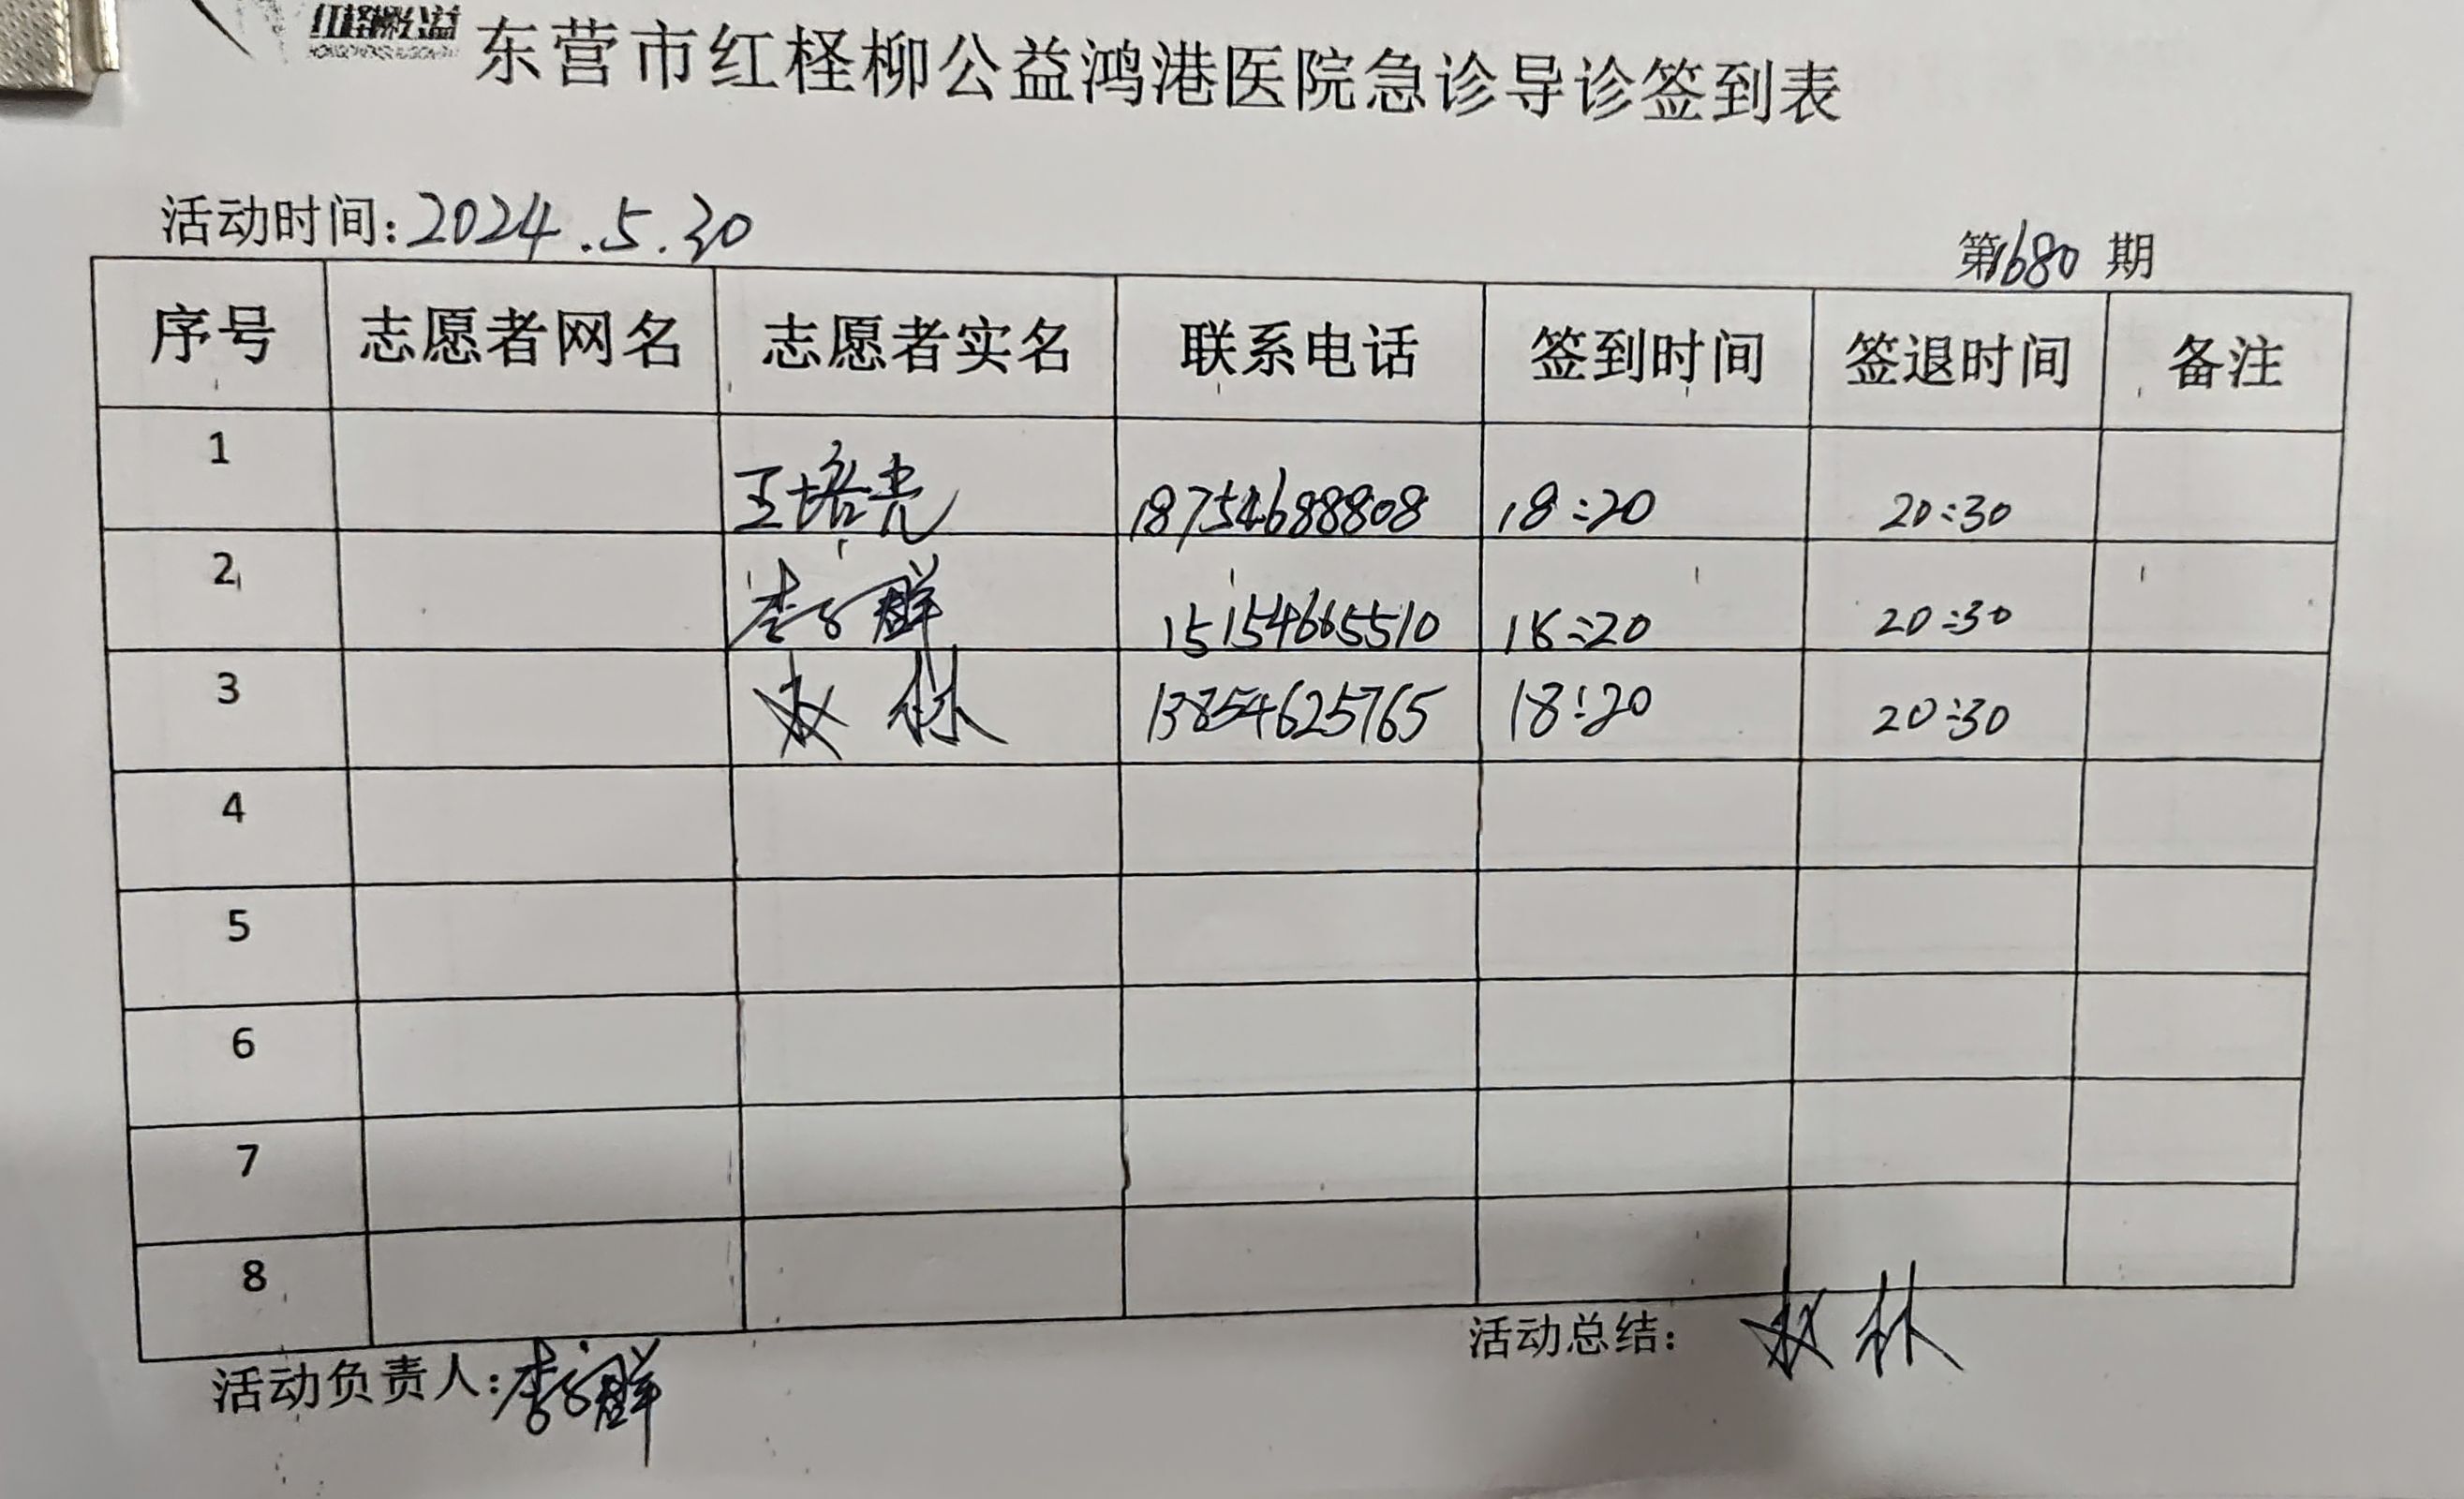 红柽柳公益
东营市红柽柳公益鸿港医院急诊导诊签到表
活动时间:2024.5.30
第1680期
序号 志愿者网名 志愿者实名 联系电话 签到时间 签退时间 备注
1 王培亮 18754688808 18:20 20:30
2 李 群 15154665510 18:20 20:30
3 赵 林 13854625765 18:20 20:30
4
5
6
7
8
活动负责人:李 群
活动总结: 赵林